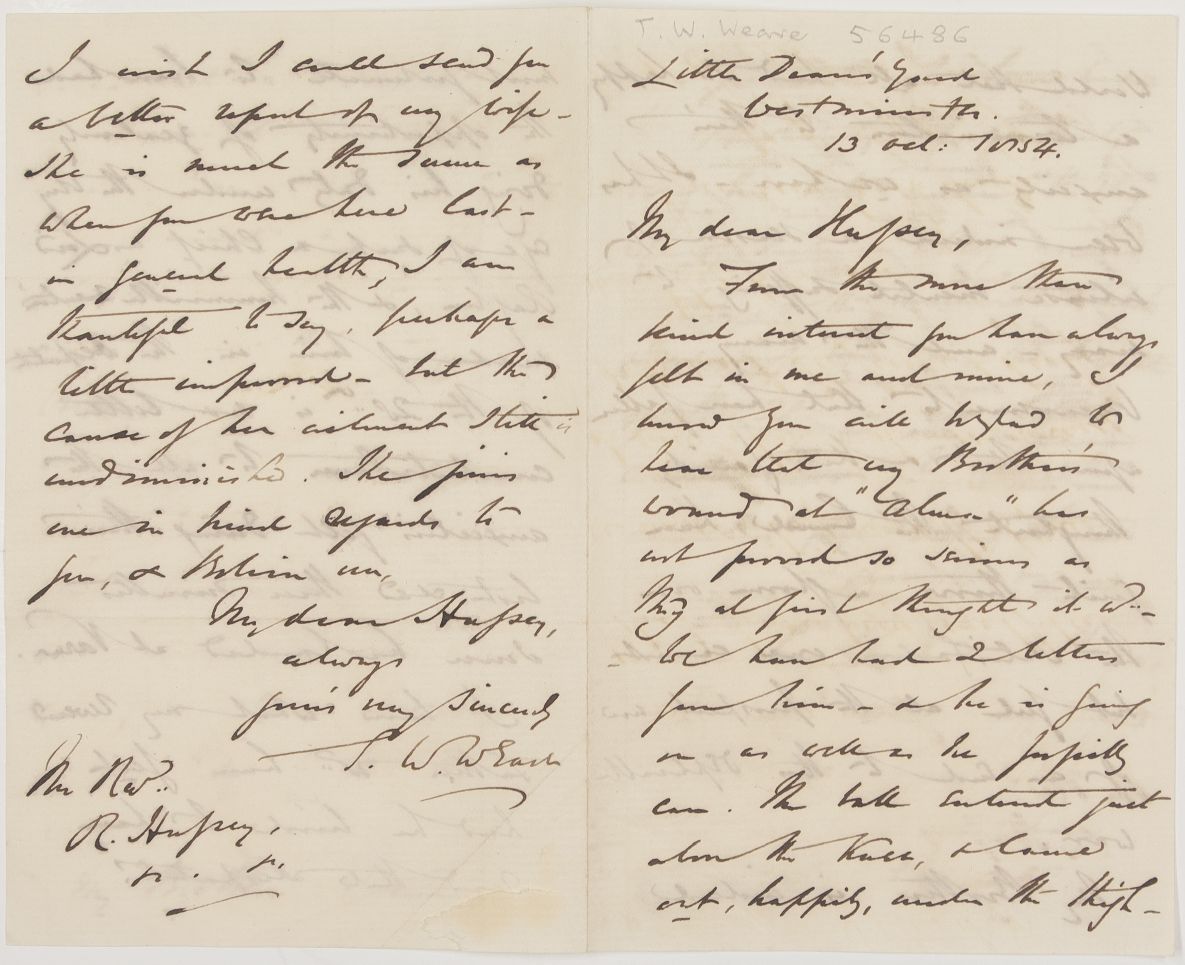 T. W. Weare 56486
Little Dean's Yard
Westminster.
13 Oct: 1854.
My dear Hussey,
From the more than
kind interest you have always
felt in me and mine, I
know you will be glad to
hear that my Brother's
wound at "Alma" has
not proved so serious as
they at first thought it wd.-
We have had 2 letters
from him - & he is going
on as well as he possibly
can. The ball entered just
above the knee, & came
out, happily, under the thigh -
I wish I could send you
a better report of my wife -
She is much the same as
when you were here last -
in general health, I am
thankful to say, perhaps a
little improved - but the
cause of her ailment still is
undiminished. She joins
me in kind regards to
you, & Believe me,
My dear Hussey,
always
yours very sincerely
T. W. Weare
The Revd.
R. Hussey,